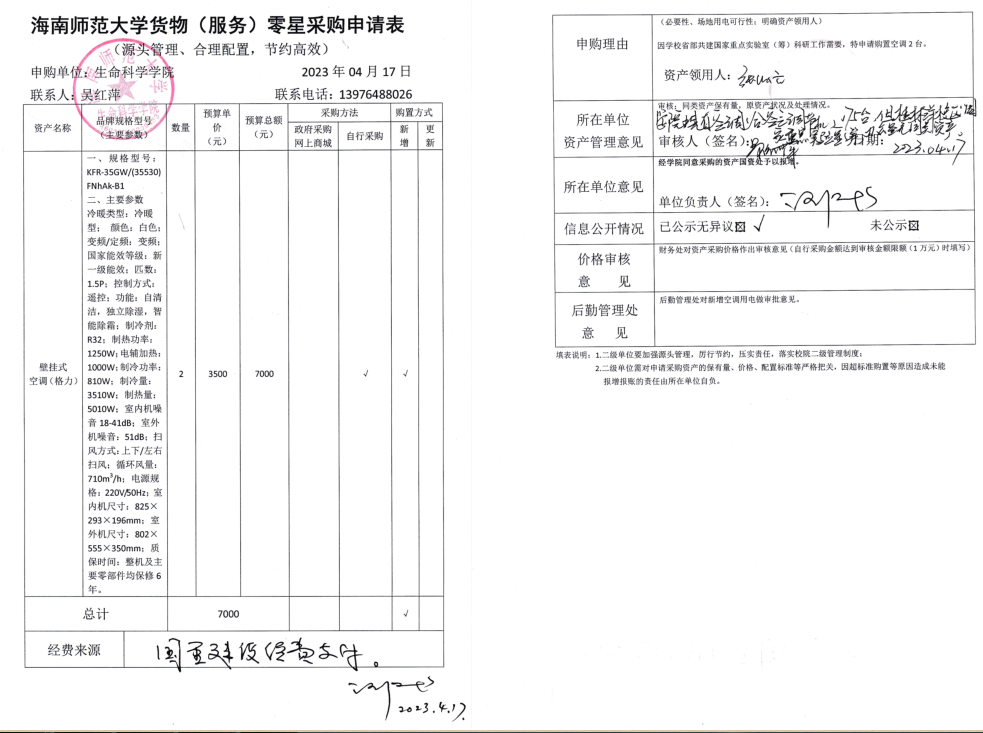 海南师范大学货物（服务）零星采购申请表
（源头管理、合理配置，节约高效）
申购单位：生命科学学院 2023 年 04 月 17 日
联系人：吴红萍 联系电话：13976488026
资产名称 品牌规格型号（主要参数） 数量 预算单价（元） 预算总额（元） 采购方法 购置方式
政府采购网上商城 自行采购 新增 更新
壁挂式空调（格力） 2 3500 7000 √ √
一、规格型号：
KFR-35GW/(35530)
FNhAk-B1
二、主要参数
冷暖类型：冷暖
型； 颜色：白色；
变频/定频：变频；
国家能效等级：新
一级能效；匹数：
1.5P；控制方式：
遥控；功能：自清
洁，独立除湿，智
能除霜；制冷剂：
R32；制热功率：
1250W；电辅加热：
1000W；制冷功率：
810W；制冷量：
3510W；制热量：
5010W；室内机噪
音 18-41dB；室外
机噪音：51dB；扫
风方式：上下/左右
扫风；循环风量：
710m³/h；电源规
格：220V/50Hz；室
内机尺寸：825×
293×196mm；室
外机尺寸：802×
555×350mm；质
保时间：整机及主
要零部件均保修 6
年。
总计 7000 √
经费来源 国重建设经费支付。
2023.4.17
申购理由
（必要性、场地用电可行性；明确资产领用人）
因学校省部共建国家重点实验室（筹）科研工作需要，特申请购置空调 2 台。
资产领用人：
所在单位
资产管理意见
审核：同类资产保有量，原资产状况及处理情况。
审核人（签名）： 日期：2023.04.17
所在单位意见
经学院同意采购的资产国资处予以报增。
单位负责人（签名）：
信息公开情况 已公示无异议☒ √ 未公示☒
价格审核
意 见
财务处对资产采购价格作出审核意见（自行采购金额达到审核金额限额（1 万元）时填写）
后勤管理处
意 见
后勤管理处对新增空调用电做审批意见。
填表说明：1.二级单位要加强源头管理，厉行节约，压实责任，落实校院二级管理制度；
2.二级单位需对申请采购资产的保有量、价格、配置标准等严格把关，因超标准购置等原因造成未能
报增报账的责任由所在单位自负。